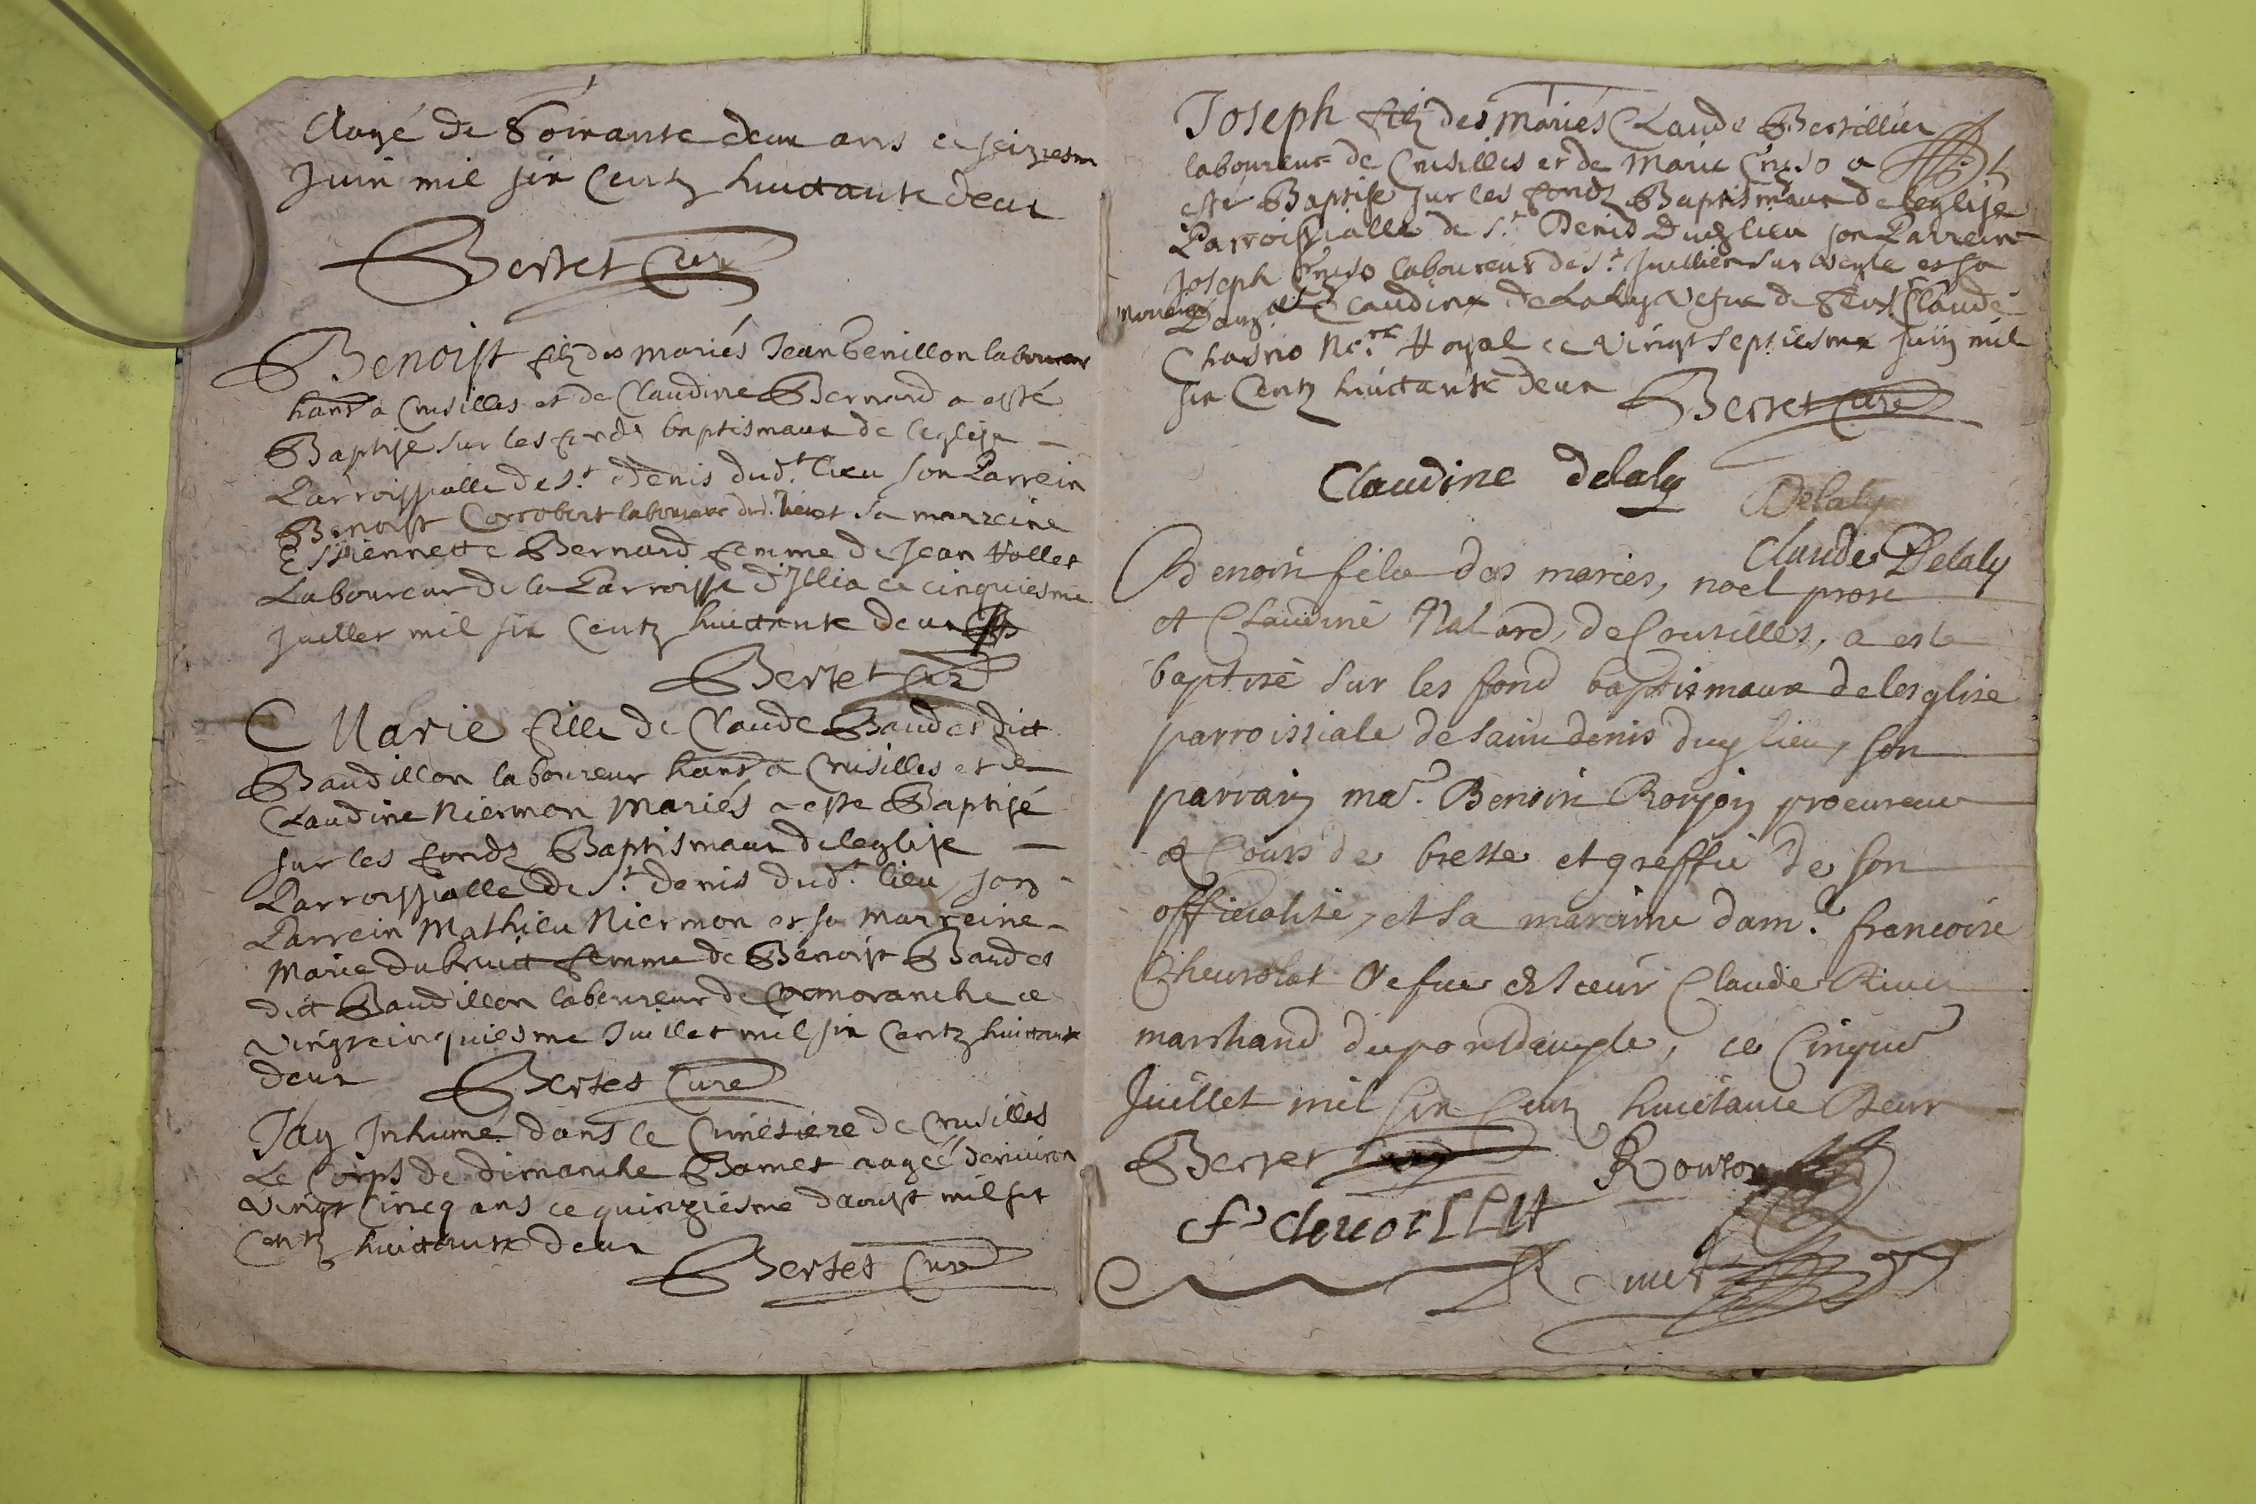 Aagé de Soixante deux ans ce seiziesm
Juin mil six Centz huictante deux
Bertet Curé
Benoist filz des mariés Jean benillon laboureur
hantz a Crusilles et de Claudine Bernard a esté
Baptisé sur les fondz baptismaux de leglise
Parroissialle de St. Denis dudt. lieu son Parrein
Benoist Corrobert laboureur dud. lieu et sa marreine
Estiennette Bernard femme de Jean Vollet
Laboureur de la Parroisse d'Illia ce cinquiesme
Juillet mil six Centz huictante deux
Bertet Curé
Marie fille de Claude Baudet dict
Baudillon laboureur hantz a Crusilles et de
Claudine Niermon Mariés a esté Baptisé
sur les fondz Baptismaux de leglise
Parroissialle de St. denis dudt. lieu, son
Parrein Mathieu Niermon et sa Marreine
Marie dubruict femme de Benoist Baudet
dict Baudillon laboureur de Cormoranche ce
vingtcinquiesme Juillet mil six Centz huictante
deux Bertet Curé
J'ay Inhumé dans le Cimetiere de Crusilles
Le Corps de dimanche Bamet aagéé denviron
Vingt Cincq ans ce quinziesme daoust mil six
Centz huictante deux
Bertet Curé
Joseph filz des Mariés Claude Bertillier
laboureur de Crusilles et de Marie a
esté Baptisé sur les fondz Baptismaux de leglise
Parroissialle de St. Denis Dudz lieu son Parrein
Joseph laboureur de St. Jullien sur Veyle et sa
marreine Claudine Delaly Vefve de Claude
Nore. Royal ce Vingt septiesme Juin mil
six Centz huictante deux Bertet Curé
Claudine delaly
Delaly
Claude Delaly
Benoin filz des mariés, noel prost
et Claudine de Crusilles, a esté
baptisé sur les fond baptismaux de lesglise
parroissiale de Saint denis dudz lieu, son
parrain me. Benoin Ronjon procureur
es Cours de bresse et greffié de son
officialité, et sa mareine dame. francoise
Chevrolat Vefve de sieur Claude
marchand du pontdeveyle, ce Cinque
Juillet mil six Centz huictante Deux
Bertet Curé